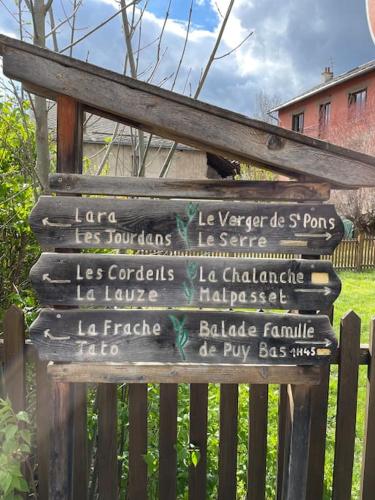 Lara
Les Jourdans
Le Verger de St Pons
Le Serre
Les Cordeils
La Lauze
La Chalanche
Malpasset
La Frache
Tato
Balade famille
de Puy Bas 1H45